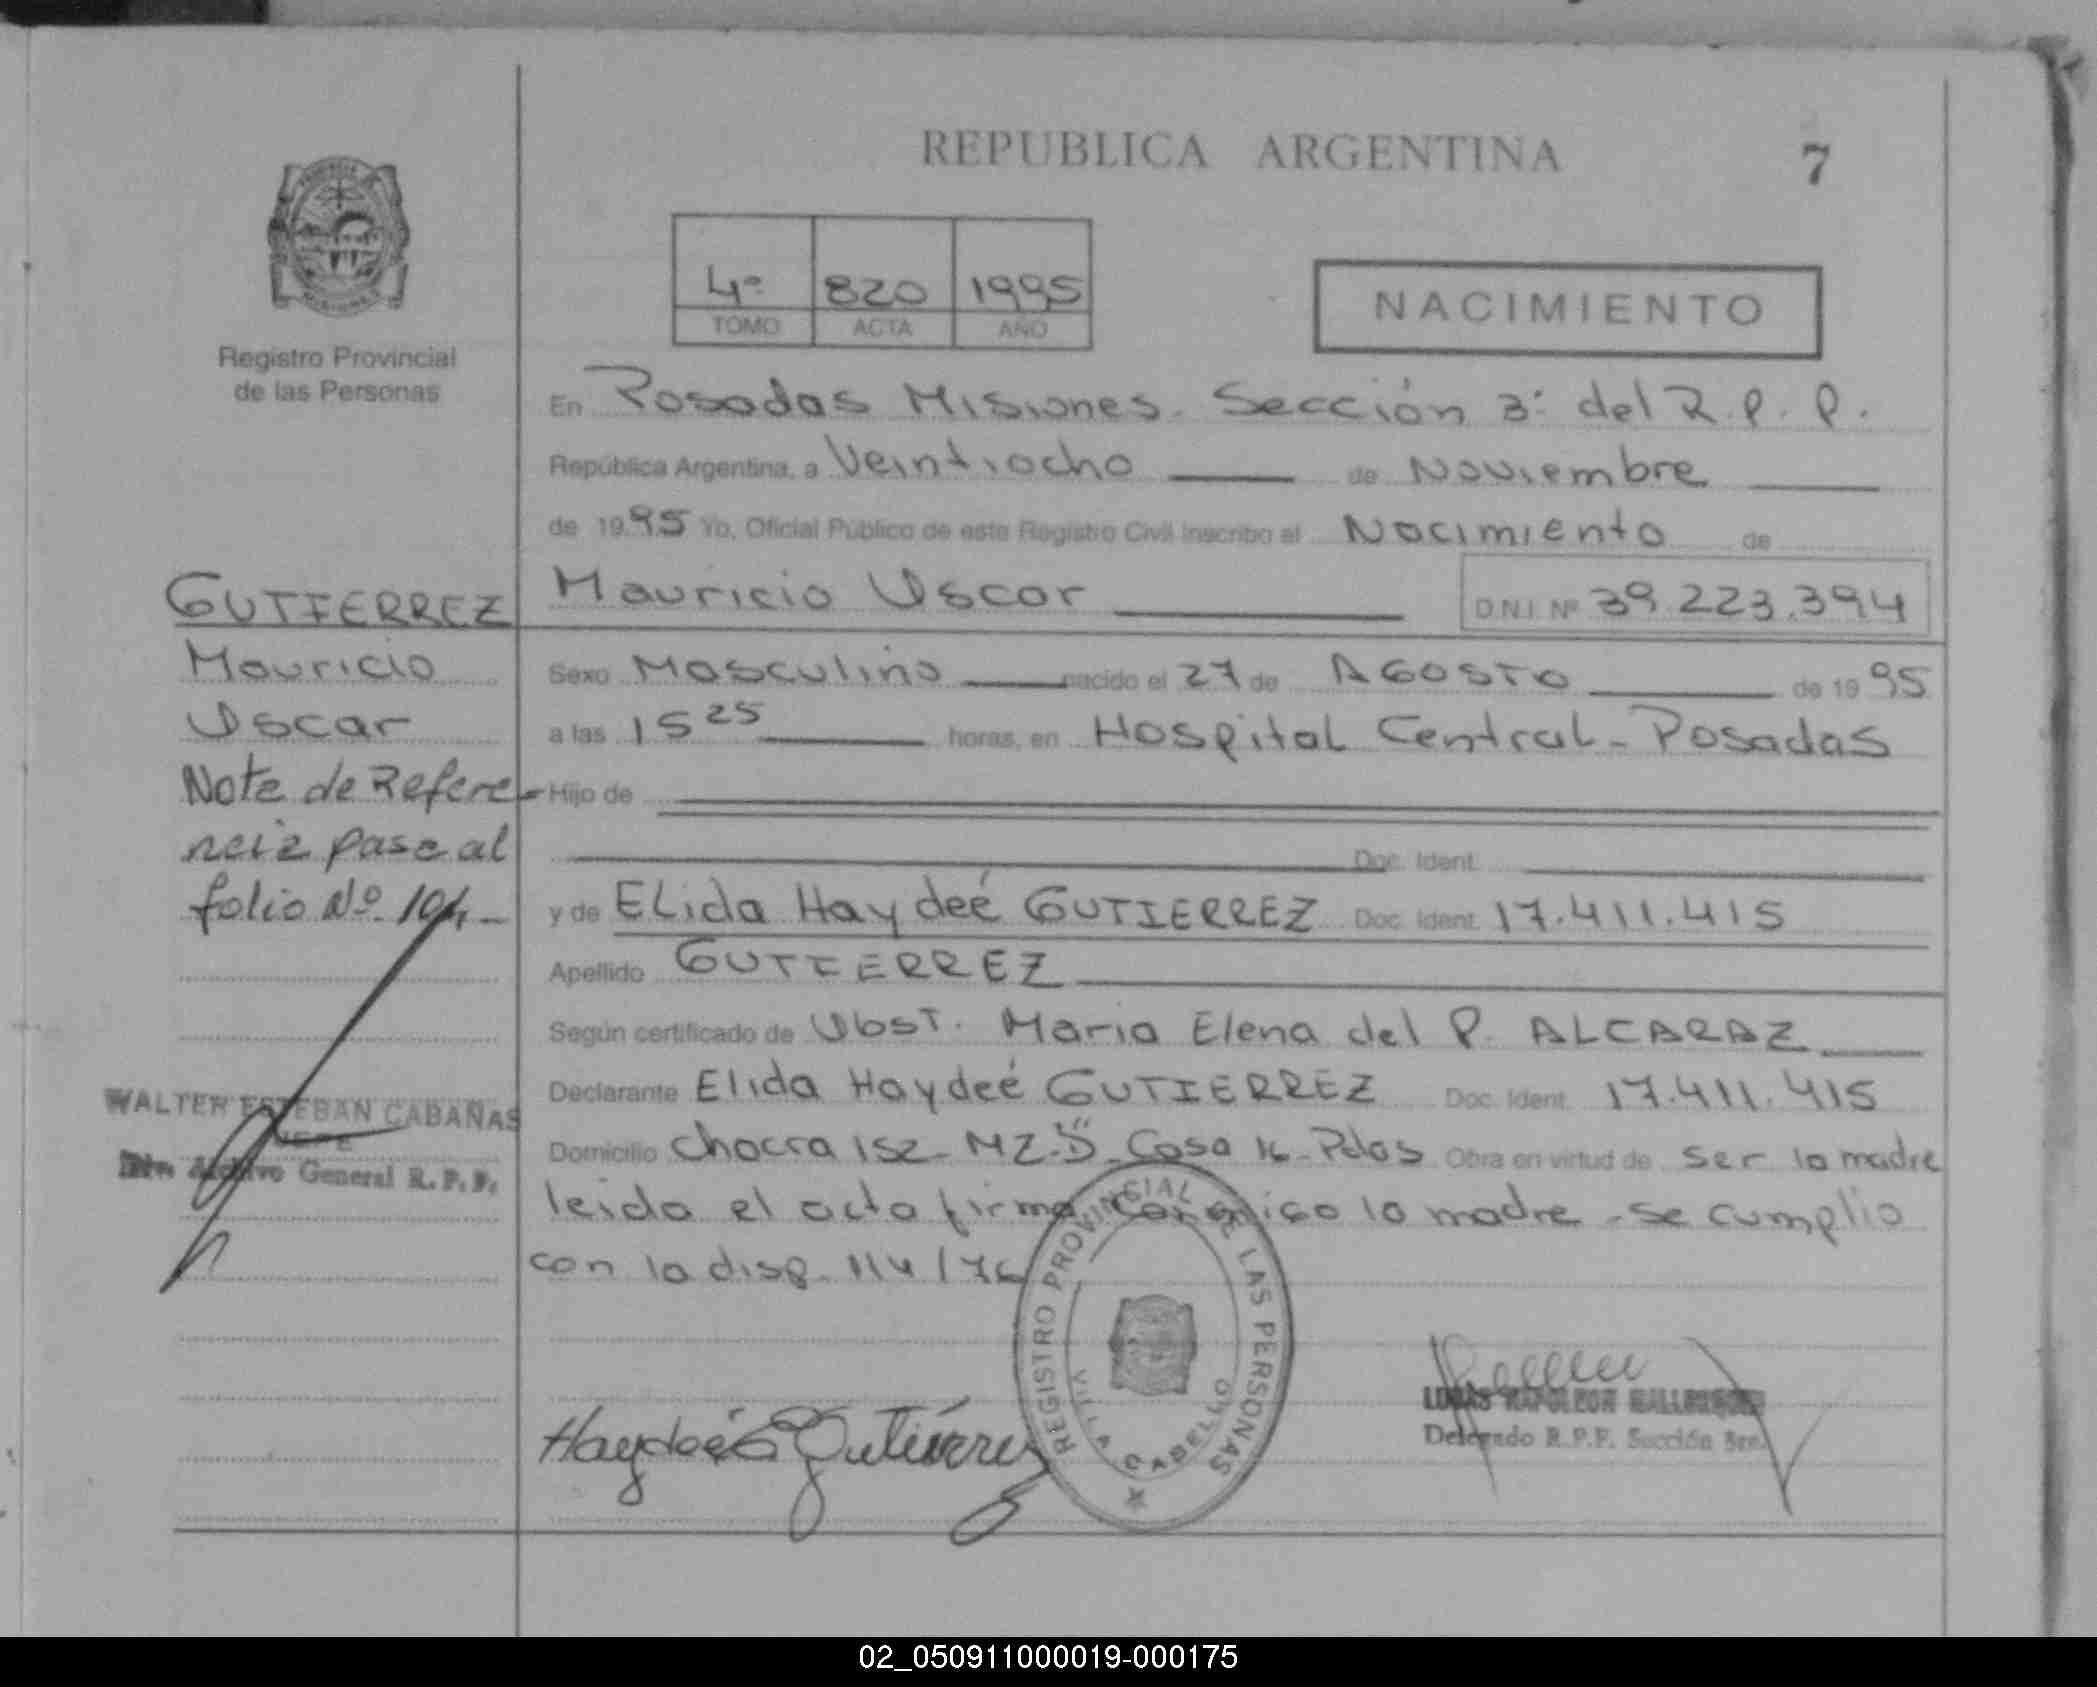 REPUBLICA ARGENTINA
7
4º 820 1995
TOMO ACTA AÑO
NACIMIENTO
Registro Provincial
de las Personas
En Posadas Misiones. Sección 3ª del R.P.P.
República Argentina, a Veintiocho de Noviembre
de 1995 Yo, Oficial Público de este Registro Civil inscribo el Nacimiento de
Mauricio Oscar D.N.I. Nº 39.223.394
Sexo Masculino nacido el 27 de AGOSTO de 1995
a las 15 25 horas, en Hospital Central - Posadas
Hijo de
Doc. Ident.
y de Elida Haydeé GUTIERREZ Doc. Ident. 17.411.415
Apellido GUTIERREZ
Según certificado de Obst. Maria Elena del P. ALCARAZ
Declarante Elida Haydeé GUTIERREZ Doc. Ident. 17.411.415
Domicilio Chacra 152 - MZ. "D" - Casa 16 - Pdas Obra en virtud de ser la madre
leida el acta firma conmigo la madre - se cumplio
con la disp. 114/76
GUTIERREZ
Mauricio
Oscar
Nota de Refere-
ncia pase al
folio Nº 104.-
WALTER ESTEBAN CABAÑAS
JEFE
Div. Archivo General R.P.P.
Haydeé Gutiérrez
REGISTRO PROVINCIAL DE LAS PERSONAS
VILLA CABELLO
LUCAS NAPOLEON
Delegado R.P.P. Sección 3ra.
02_050911000019-000175